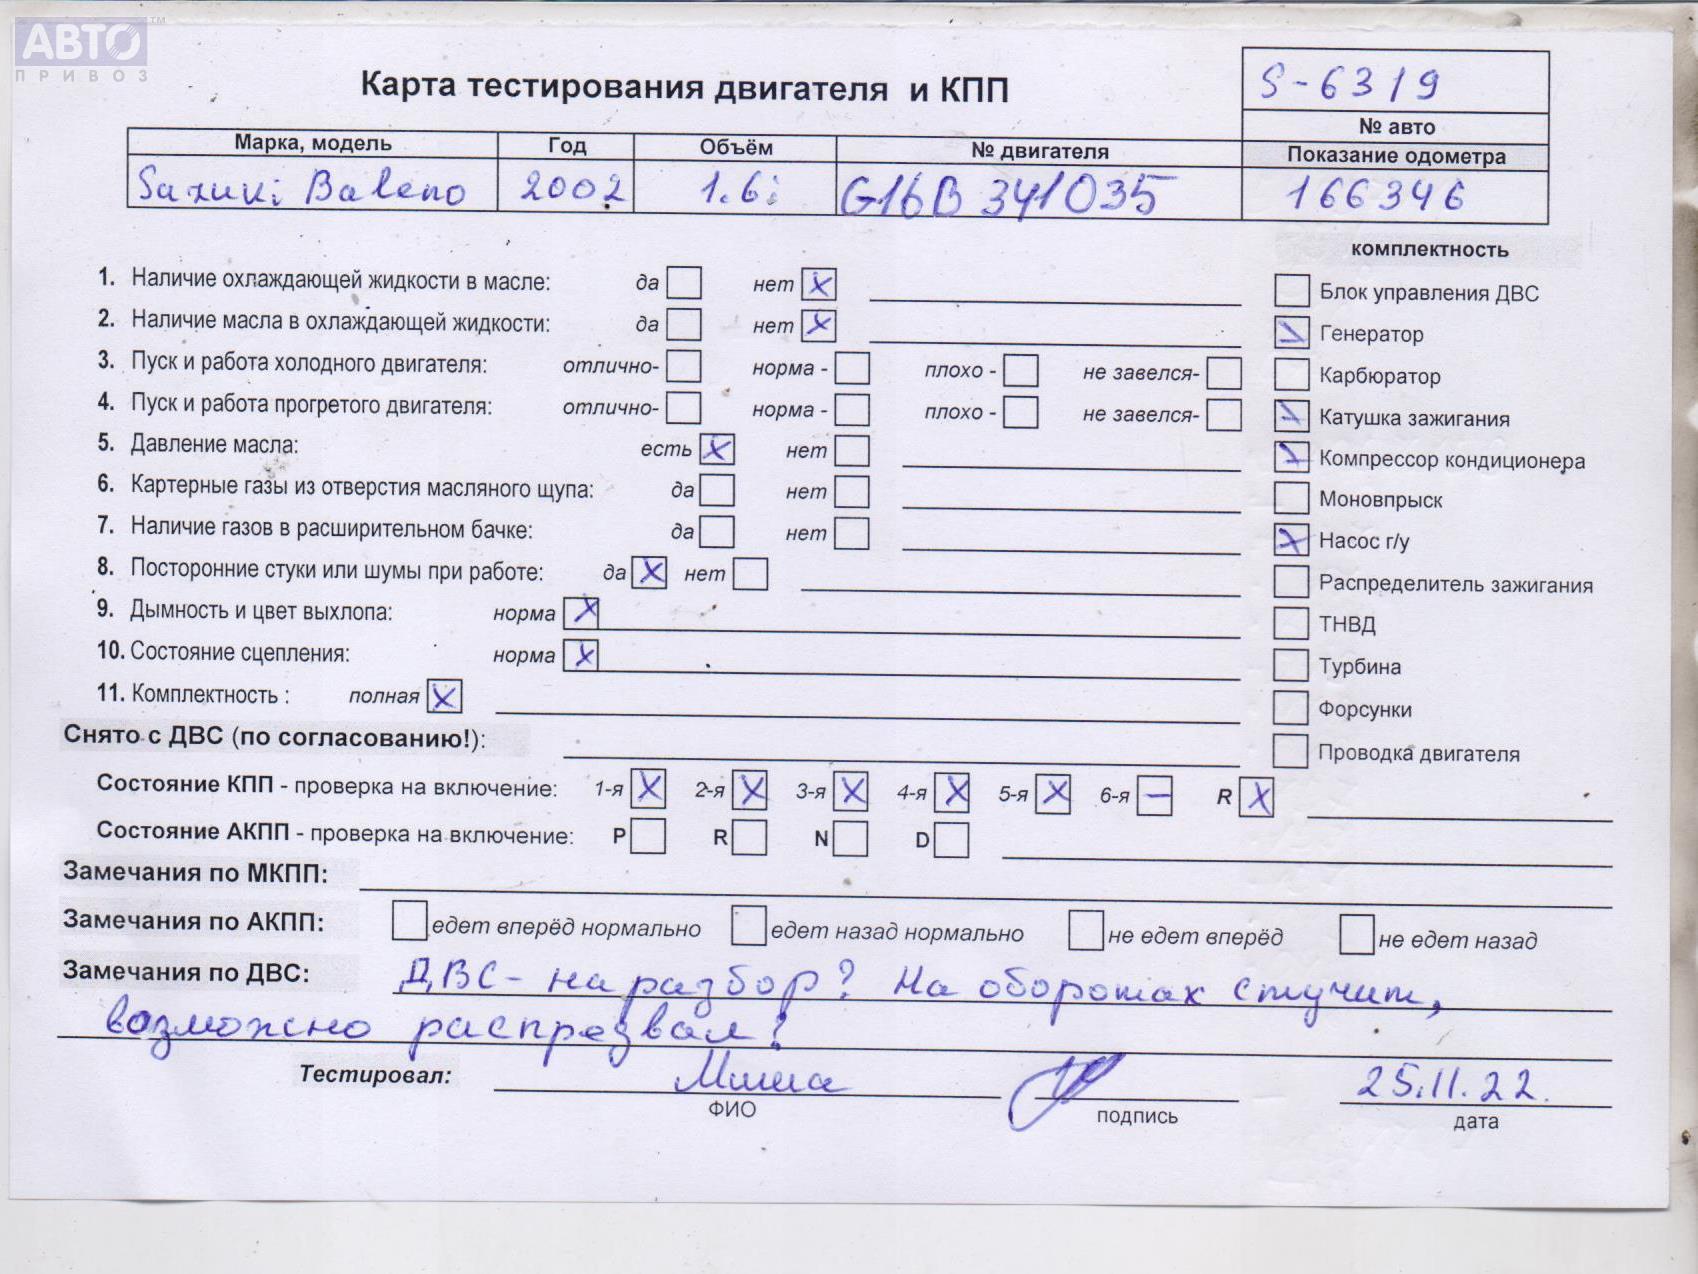 АВТО ™
ПРИВОЗ
Карта тестирования двигателя и КПП
S-6319
№ авто
Марка, модель Год Объём № двигателя Показание одометра
Suzuki Baleno 2002 1.6i G16B 341035 166346
комплектность
1. Наличие охлаждающей жидкости в масле: да нет X
Блок управления ДВС
2. Наличие масла в охлаждающей жидкости: да нет X
Генератор
3. Пуск и работа холодного двигателя: отлично- норма - плохо - не завелся-
Карбюратор
4. Пуск и работа прогретого двигателя: отлично- норма - плохо - не завелся-
Катушка зажигания
5. Давление масла: есть X нет
Компрессор кондиционера
6. Картерные газы из отверстия масляного щупа: да нет
Моновпрыск
7. Наличие газов в расширительном бачке: да нет
Насос г/у
8. Посторонние стуки или шумы при работе: да X нет
Распределитель зажигания
9. Дымность и цвет выхлопа: норма X
ТНВД
10. Состояние сцепления: норма X
Турбина
11. Комплектность : полная X
Форсунки
Снято с ДВС (по согласованию!):
Проводка двигателя
Состояние КПП - проверка на включение: 1-я X 2-я X 3-я X 4-я X 5-я X 6-я — R X
Состояние АКПП - проверка на включение: P R N D
Замечания по МКПП:
Замечания по АКПП: едет вперёд нормально едет назад нормально не едет вперёд не едет назад
Замечания по ДВС: ДВС - на разбор? На оборотах стучит,
возможно распредвал?
Тестировал: Миша 25.11.22.
ФИО подпись дата